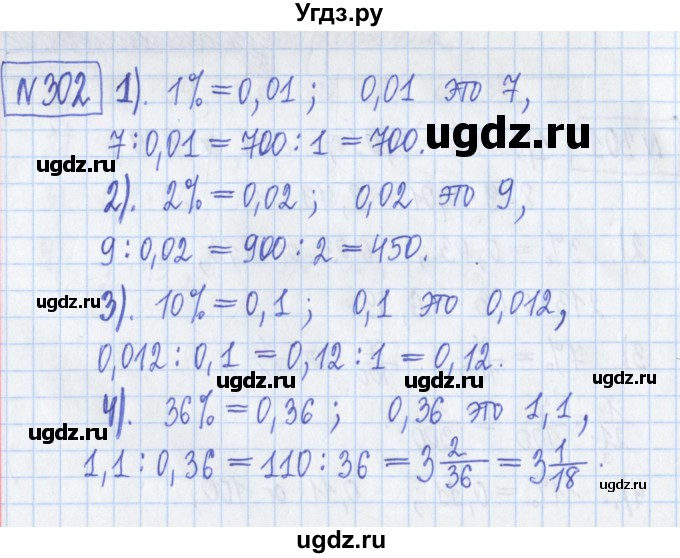 Угдз.ру
№302 1). 1% = 0,01 ; 0,01 это 7,
7 : 0,01 = 700 : 1 = 700.
ugdz.ru
ugdz.ru
2). 2% = 0,02 ; 0,02 это 9,
9 : 0,02 = 900 : 2 = 450.
ugdz.ru
ugdz.ru
3). 10% = 0,1 ; 0,1 это 0,012,
0,012 : 0,1 = 0,12 : 1 = 0,12.
ugdz.ru
ugdz.ru
4). 36% = 0,36 ; 0,36 это 1,1,
ugdz.ru
1,1 : 0,36 = 110 : 36 = 3 2/36 = 3 1/18.
ugdz.ru
ugdz.ru